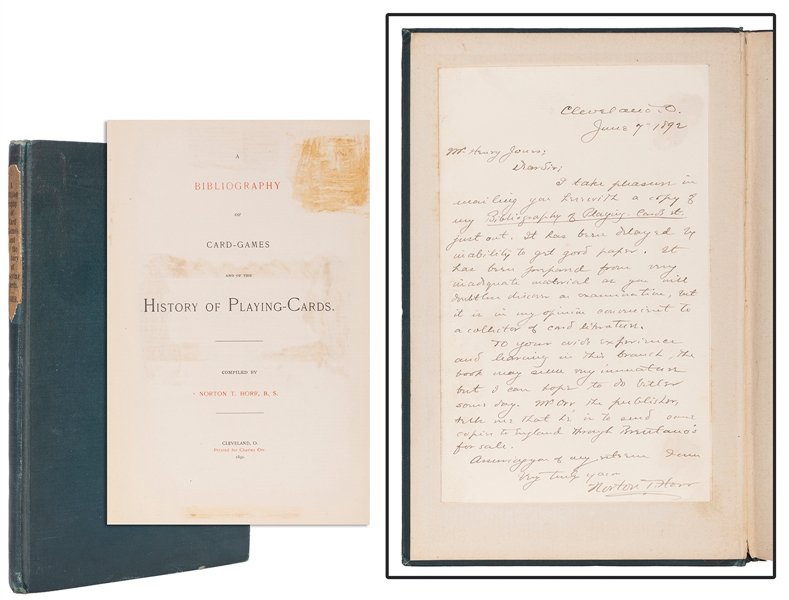 A
BIBLIOGRAPHY
OF
CARD-GAMES
AND OF THE
HISTORY OF PLAYING-CARDS.
COMPILED BY
NORTON T. HORR, B. S.
CLEVELAND, O.
Printed for Charles Orr.
1892.
Cleveland O.
June 7 1892
Mr. Henry Jones;
Dear Sir;
I take pleasure in
mailing you herewith a copy of
my Bibliography of Playing-Cards etc
just out. It has been delayed by
inability to get good paper. It
has been prepared from very
inadequate material as you will
doubtless discover on examination, but
it is in my opinion convenient to
a collector of card literature.
To your wide experience
and learning in this branch, the
book may seem my immature
but I can hope to do better
some day. Mr Orr the publisher,
tells me that he is to send some
copies to England through Brentano's
for sale.
Assuring you of my esteem I am
Very truly yours
Norton T. Horr